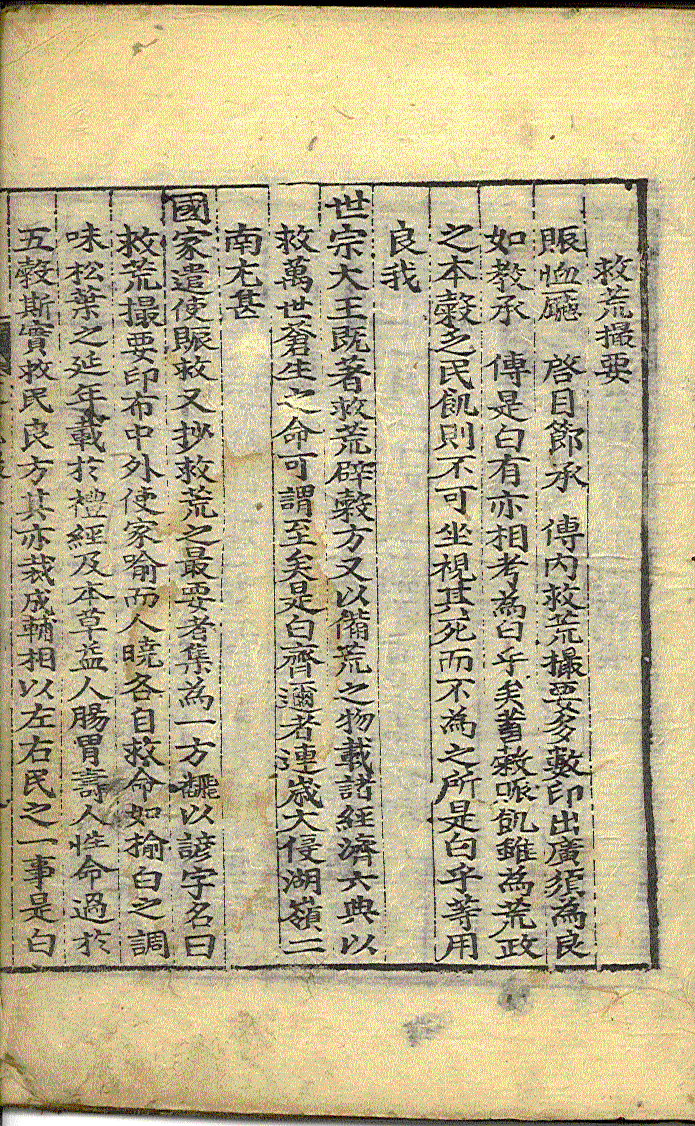 救荒撮要
賑恤廳 啓目節承 傳內救荒撮要多數印出廣須為良
如教承 傳是白有亦相考為白乎矣蓄穀賑飢雖為荒政
之本穀乏民飢則不可坐視其死而不為之所是白乎等用
良我
世宗大王既著救荒辟穀方又以備荒之物載諸經濟六典以
救萬世蒼生之命可謂至矣是白齊邇者連歲大侵湖嶺二
南尤甚
國家遣使賑救又抄救荒之最要者集為一方飜以諺字名曰
救荒撮要印布中外使家喻而人曉各自救命如榆白之調
味松葉之延年載於禮經及本草益人腸胃壽人性命過於
五穀斯實救民良方其亦裁成輔相以左右民之一事是白